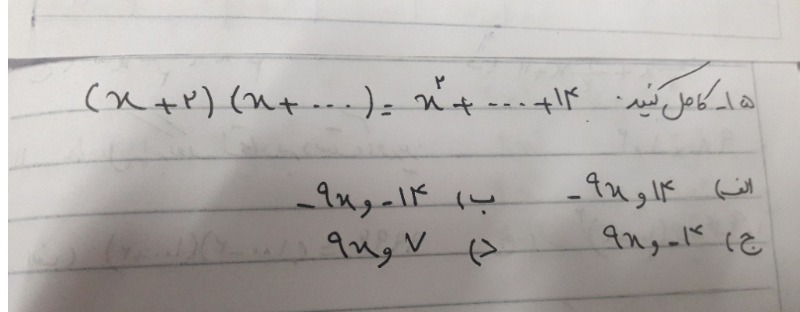 ۱۵_ کامل کنید. (x+۲)(x+...)= x²+...+۱۴
الف) ۱۴ و ۹x_ ب) ۱۴- و ۹x_
ج) ۱۴- و ۹x د) ۷ و ۹x